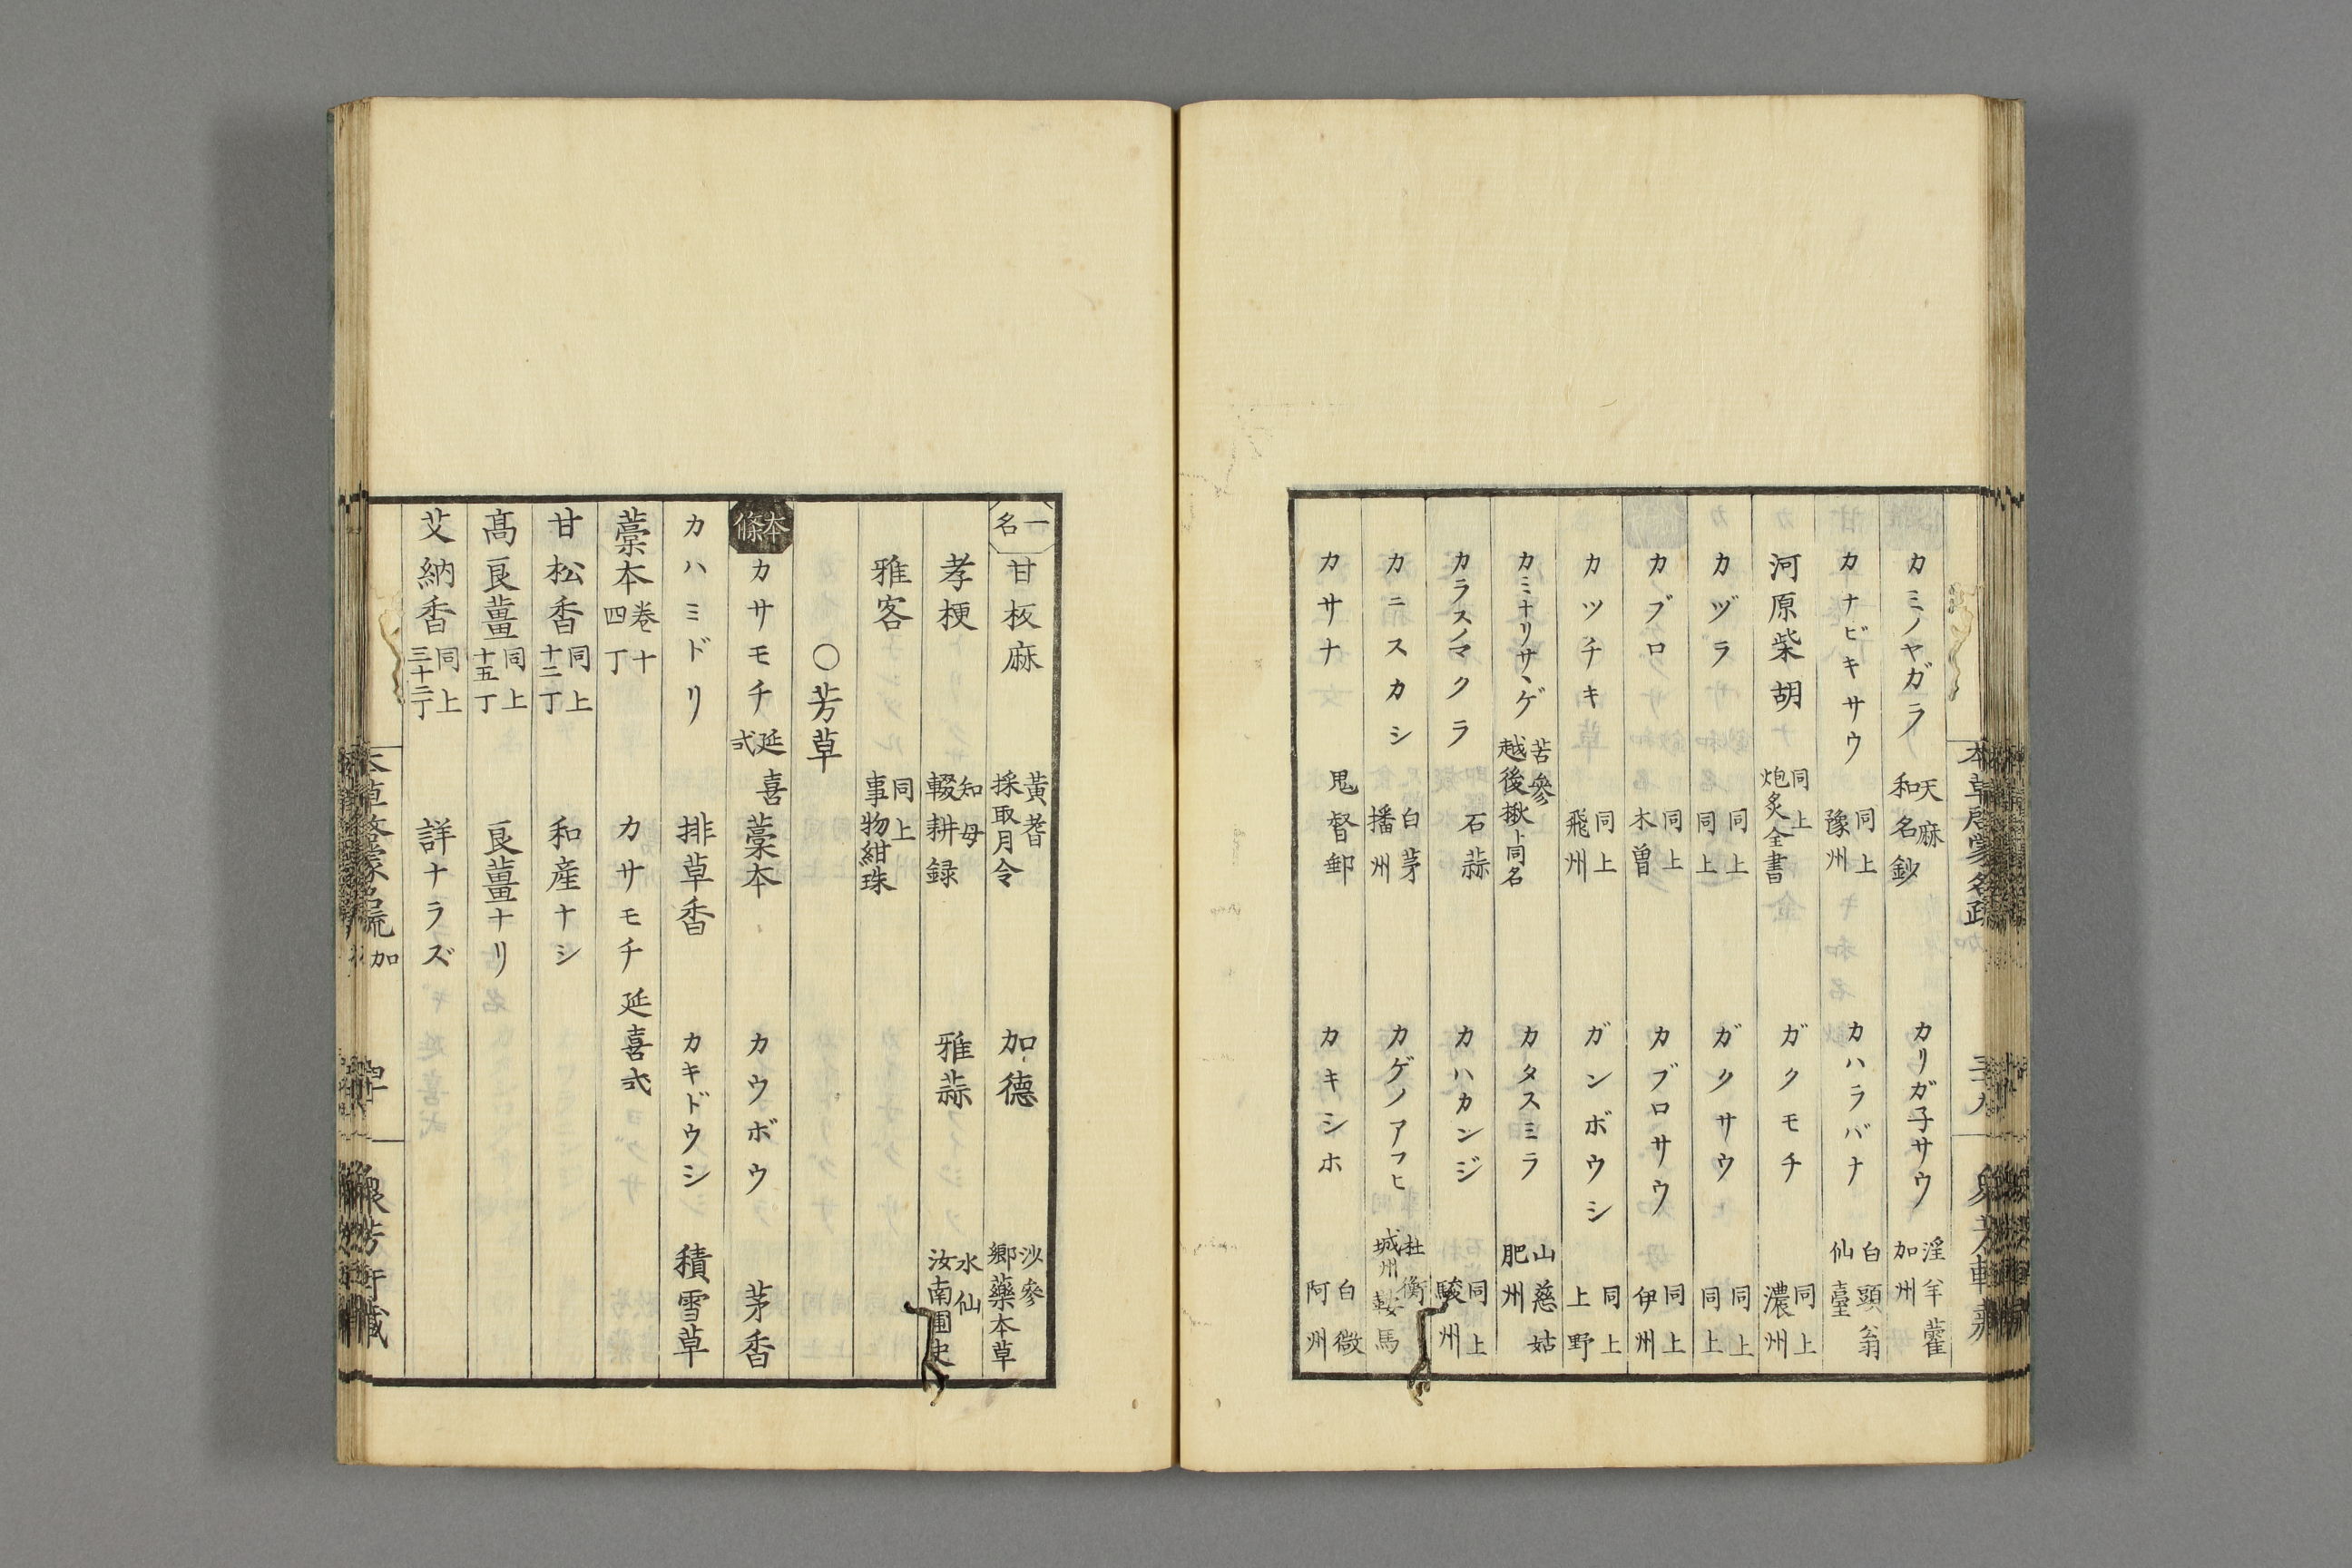 カミノヤガラ 天麻 和名鈔 カリガ子サウ 淫羊藿 加州
カナビキサウ 同上 豫州 カハラバナ 白頭翁 仙臺
河原柴胡 同上 炮炙全書 ガクモチ 同上 濃州
カヅラ 同上 同上 ガクサウ 同上 同上
カブロ 同上 木曽 カブロサウ 同上 伊州
カツチキ 同上 飛州 ガンボウシ 同上 上野
カミナリサヽゲ 苦參 越後楸ト同名 カタスミラ 山慈姑 肥州
カラスノマクラ 石蒜 カハカンジ 同上 駿州
カニスカシ 白茅 播州 カゲノアフヒ 杜衡 城州鞍馬
カサナ 鬼督郵 カキシホ 白微 阿州
一名 甘板麻 黃耆 採取月令 加德 沙參 鄉藥本草
孝梗 知母 輟耕録 雅蒜 水仙 汝南圃史
雅客 同上 事物紺珠
○芳草
本條 カサモチ 延喜式 藁本 カウボウ 茅香
カハミドリ 排草香 カキドウシ 積雪草
藁本 卷十四 十丁 カサモチ 延喜式
甘松香 同上 十二丁 和産ナシ
高良薑 同上 十五丁 良薑ナリ
艾納香 同上 三十二丁 詳ナラズ
本草啓蒙名疏 加